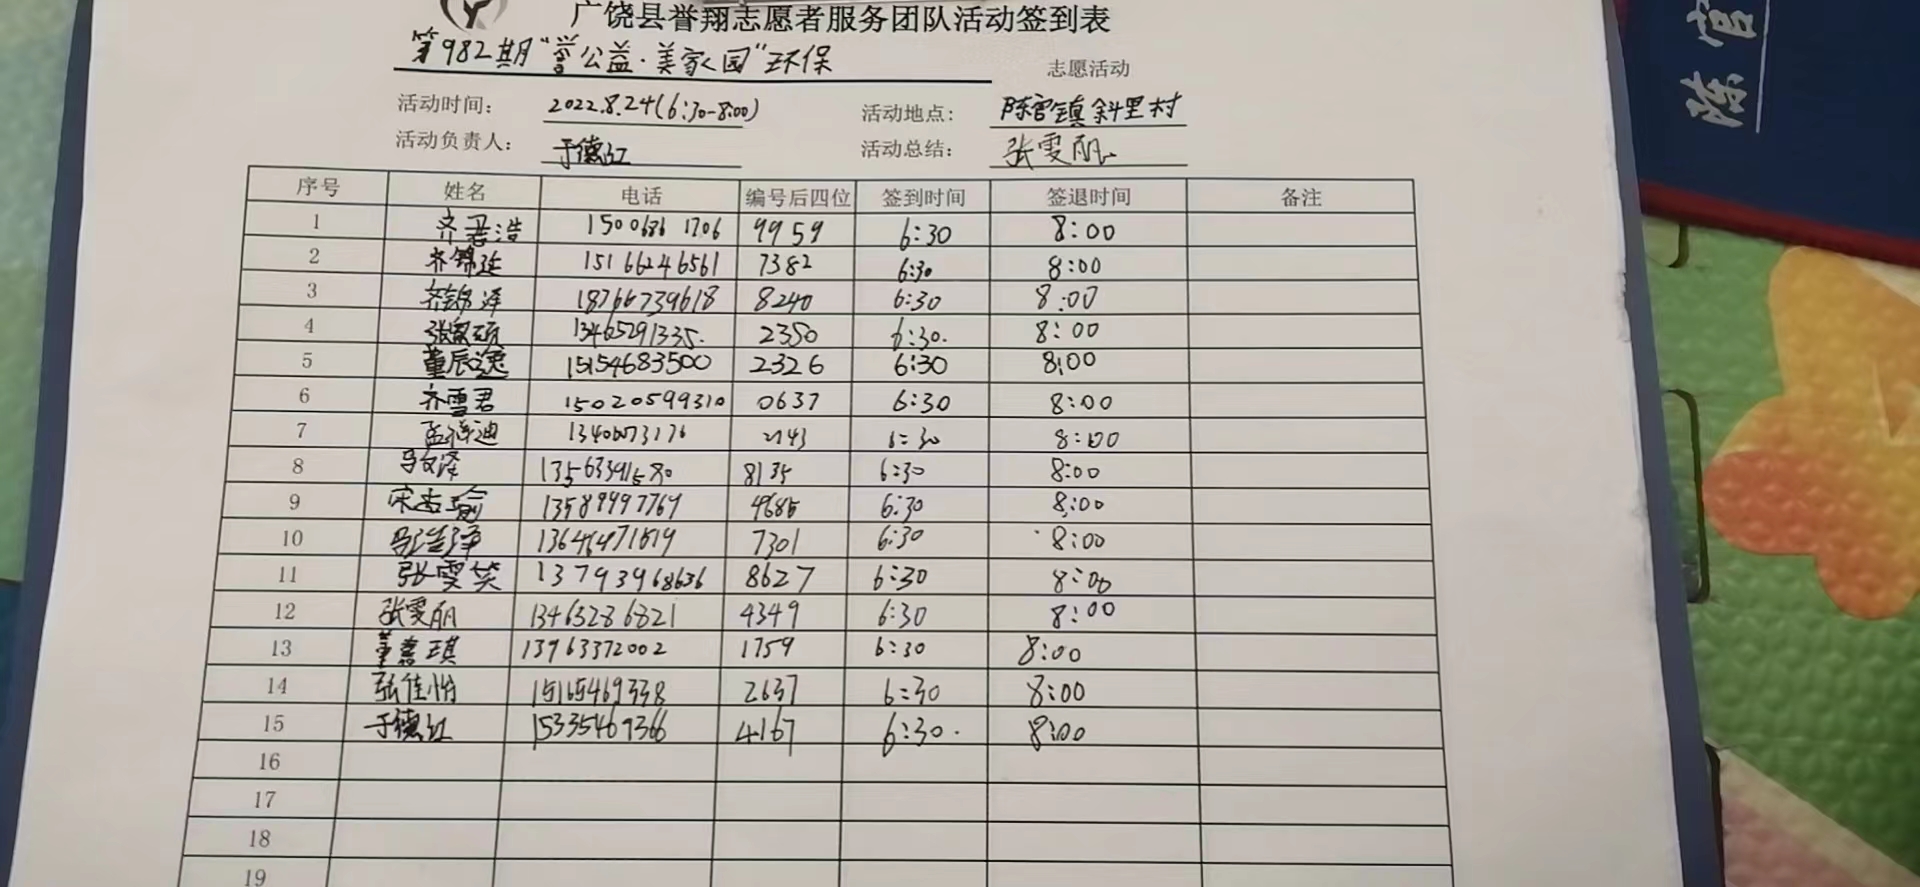 广饶县誉翔志愿者服务团队活动签到表
第982期“誉公益·美家园”环保 志愿活动
活动时间: 2022.8.24(6:30-8:00) 活动地点: 陈官镇斜里村
活动负责人: 于德江 活动总结: 张雯丽
序号 姓名 电话 编号后四位 签到时间 签退时间 备注
1 齐君浩 15006861706 9959 6:30 8:00
2 齐锦延 15166246561 7382 6:30 8:00
3 齐锦泽 18766739618 8240 6:30 8:00
4 13465291335. 2350 6:30. 8:00
5 董辰逸 15154683500 2326 6:30 8:00
6 齐雪君 15020599310 0637 6:30 8:00
7 2143 6:30 8:00
8 马文泽 8135 6:30 8:00
9 宋杰瑜 13589997769 4685 6:30 8:00
10 7301 6:30 8:00
11 张雯笑 13793968636 8627 6:30 8:00
12 张雯丽 13463286821 4349 6:30 8:00
13 董嘉琪 13963372002 1759 6:30 8:00
14 张佳怡 15165469338 2637 6:30 8:00
15 于德江 15335469366 4167 6:30. 8:00
16
17
18
19
陈官